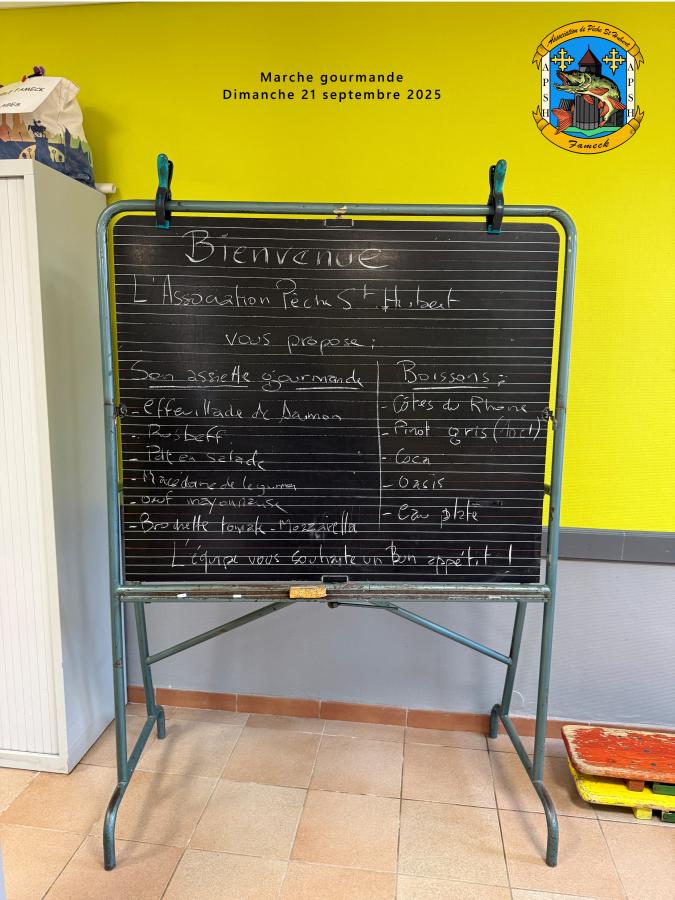 Marche gourmande
Dimanche 21 septembre 2025
Association de Pêche St Hubert
APSH
APSH
Fameck
FAMECK
Bienvenue
L'Association Pêche St Hubert
vous propose :
Son assiette gourmande
- effeuillade de Saumon
- Rosbeff
- Pât en salade
- Macédoine de legumes
- oeuf mayonnaise
- Brochette tomate - Mozzarella
Boissons :
- Côtes du Rhône
- Pinot gris
- Coca
- Oasis
- Eau plate
L'équipe vous souhaite un Bon appétit !